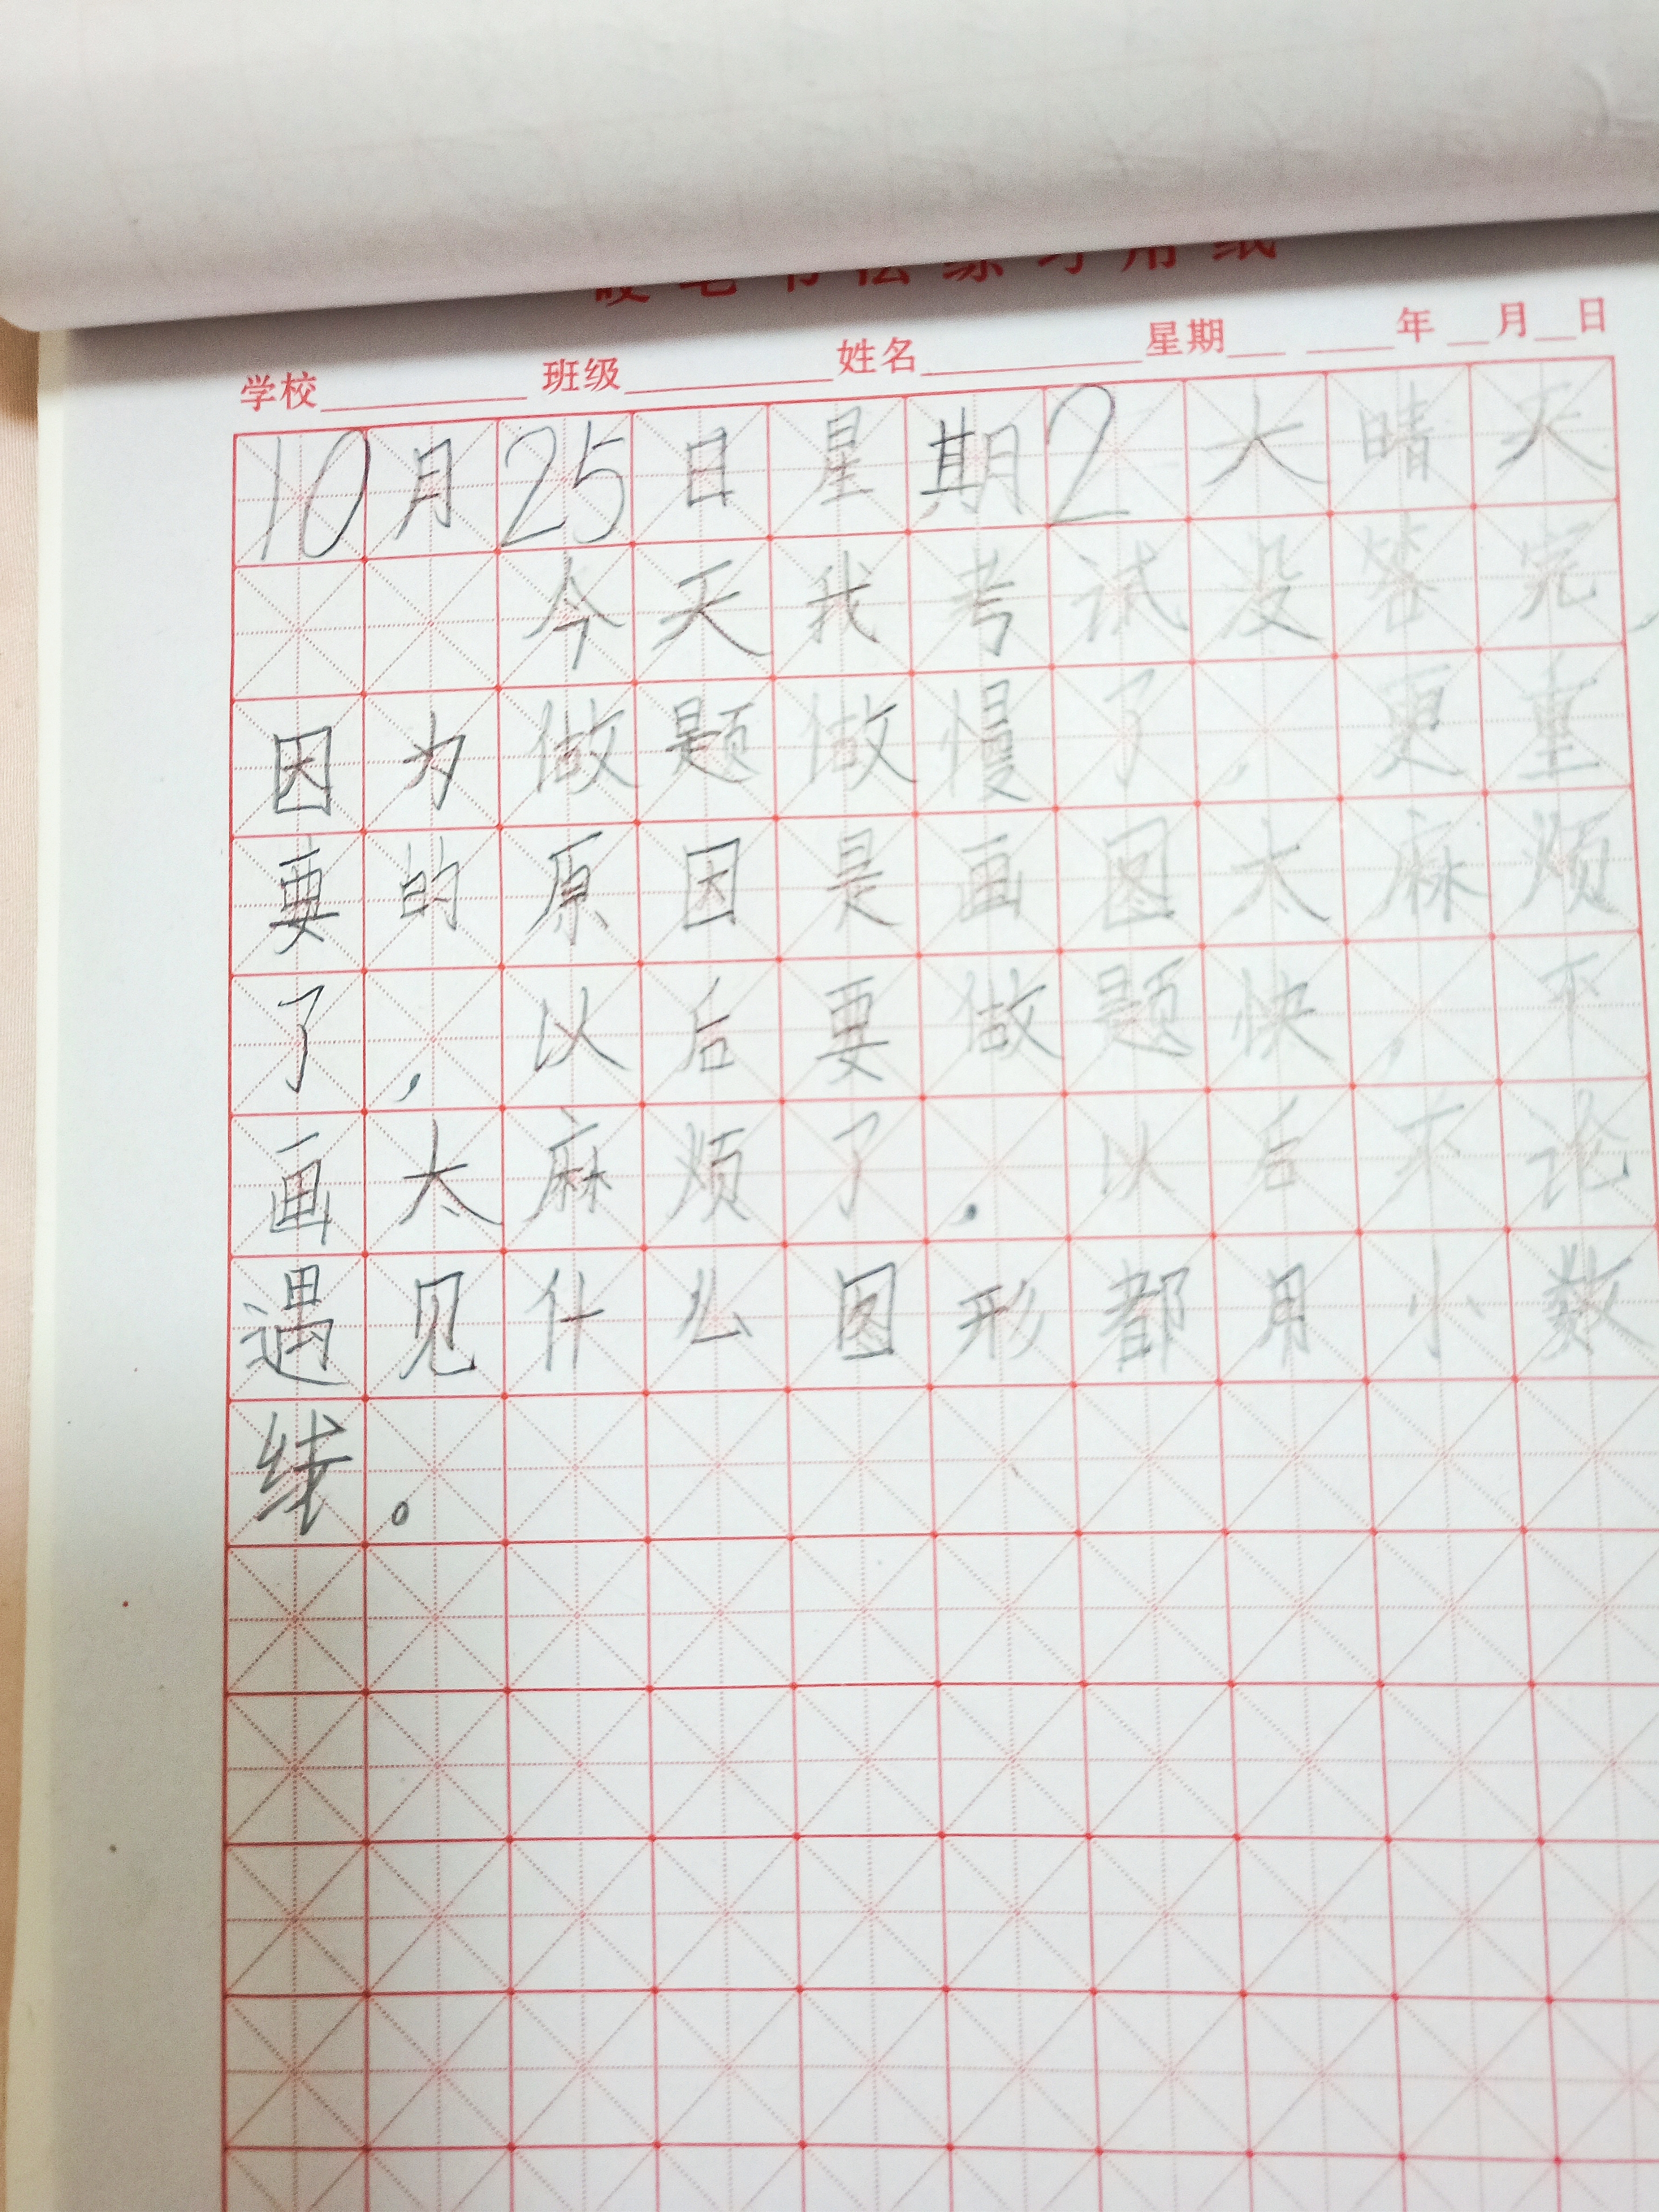 硬笔书法练习用纸
学校 班级 姓名 星期 年 月 日
10月25日星期2大晴天
今天我考试没答完，
因为做题做慢了，更重
要的原因是画图太麻烦
了，以后要做题快，不
画太麻烦了，以后不论
遇见什么图形都用小数
线。